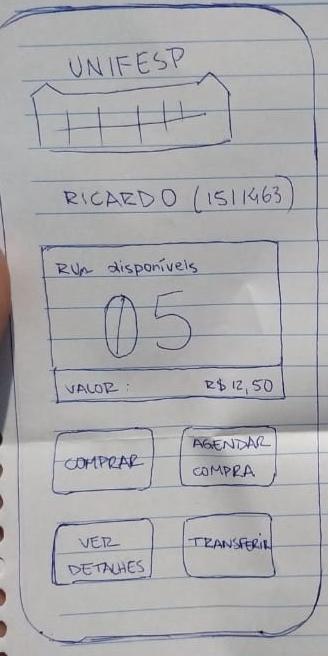 UNIFESP
RICARDO (1511463)
RUs disponíveis
05
VALOR: R$12,50
COMPRAR
AGENDAR
COMPRA
VER
DETALHES
TRANSFERIR